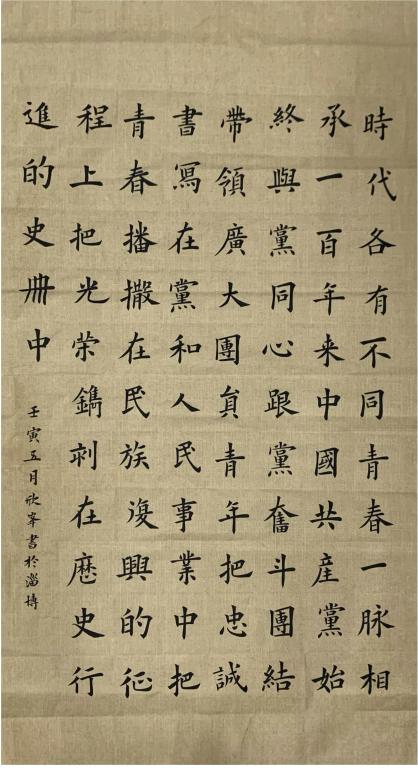 時代各有不同青春一脉相
承一百年来中國共産黨始
終與黨同心跟黨奮斗團結
帶領廣大團員青年把忠誠
書寫在黨和人民事業中把
青春播撒在民族復興的征
程上把光荣鐫刺在歷史行
進的史冊中
壬寅五月欣峯書於淄博